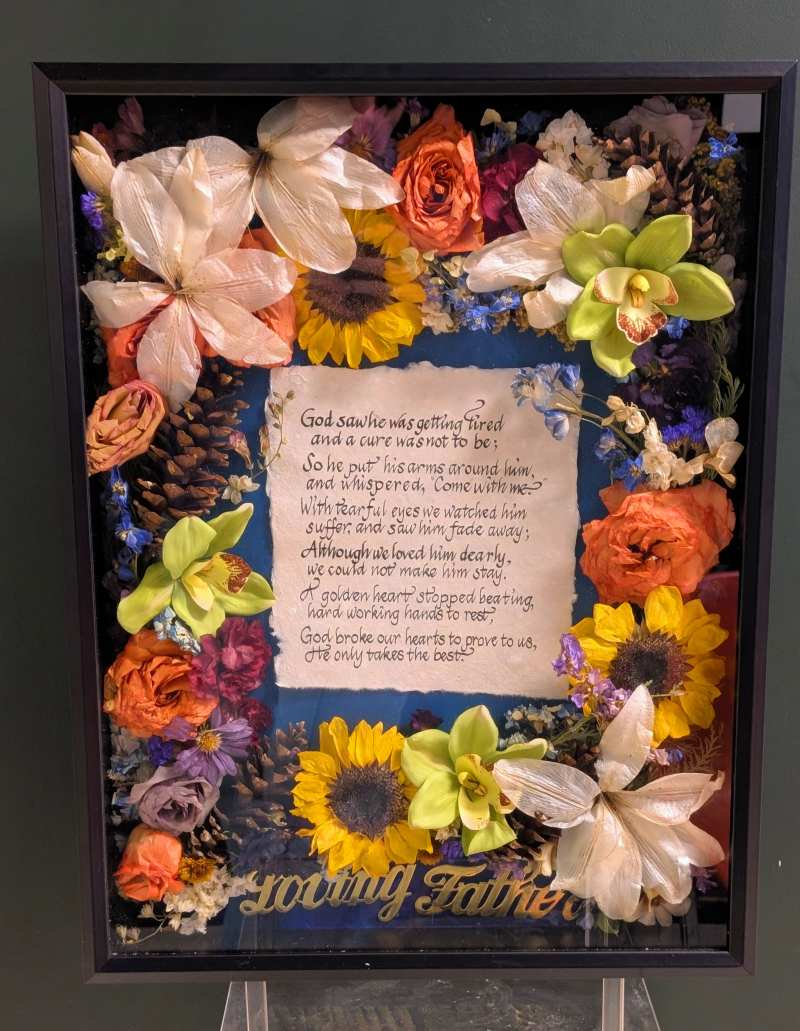 God saw he was getting tired
and a cure was not to be;
So he put his arms around him,
and whispered, "Come with me."
With tearful eyes we watched him
suffer, and saw him fade away;
Although we loved him dearly,
we could not make him stay.
A golden heart stopped beating,
hard working hands to rest,
God broke our hearts to prove to us,
He only takes the best.
Loving Father